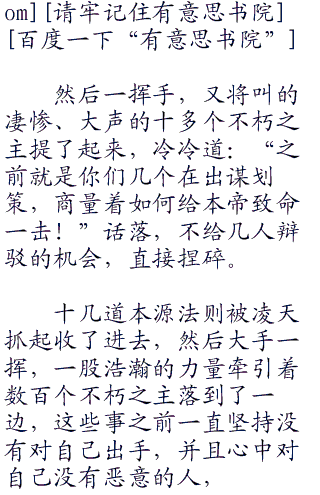 om][请牢记住有意思书院]
[百度一下“有意思书院”]
然后一挥手，又将叫的
凄惨、大声的十多个不朽之
主提了起来，冷冷道：“之
前就是你们几个在出谋划
策，商量着如何给本帝致命
一击！”话落，不给几人辩
驳的机会，直接捏碎。
十几道本源法则被凌天
抓起收了进去，然后大手一
挥，一股浩瀚的力量牵引着
数百个不朽之主落到了一
边，这些事之前一直坚持没
有对自己出手，并且心中对
自己没有恶意的人，